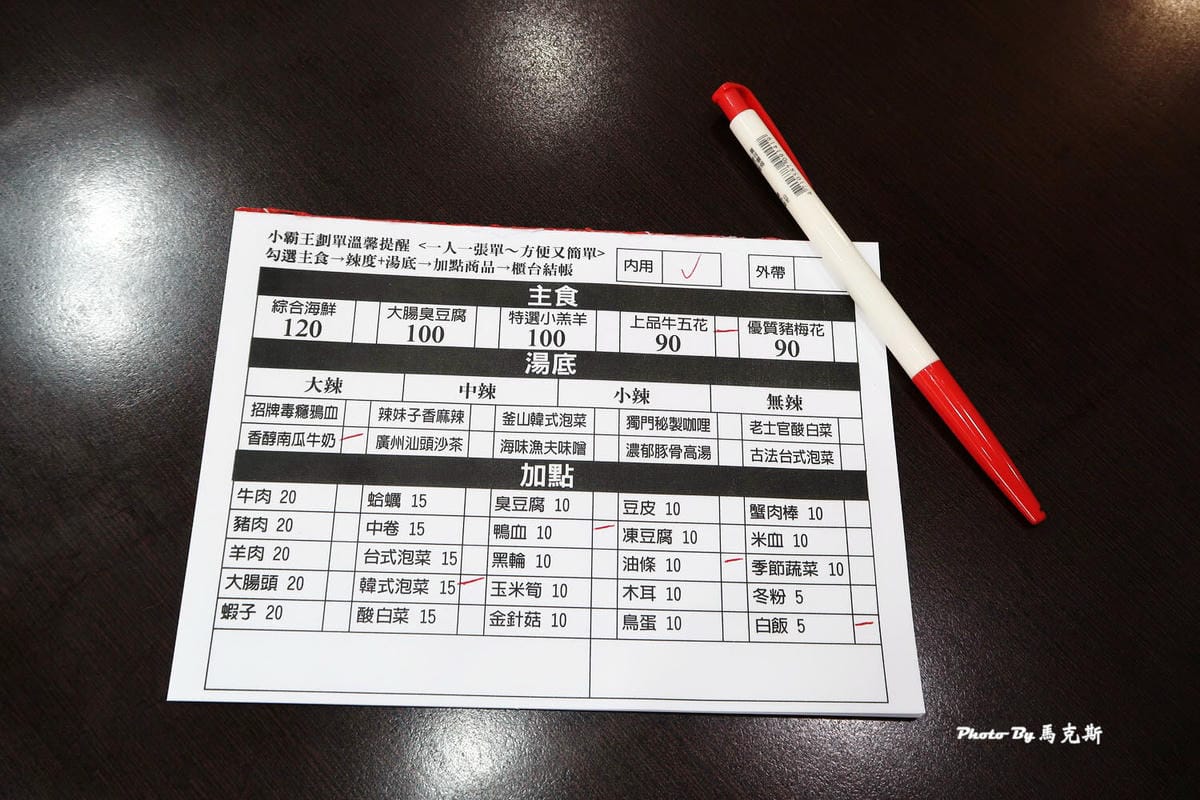 小霸王劃單溫馨提醒 <一人一張單～方便又簡單>
勾選主食→辣度+湯底→加點商品→櫃台結帳
內用 ✓ 外帶
主食
綜合海鮮 大腸臭豆腐 特選小羔羊 上品牛五花 優質豬梅花
120 100 100 90 90
湯底
大辣 中辣 小辣 無辣
招牌毒癮鴨血 辣妹子香麻辣 釜山韓式泡菜 獨門秘製咖哩 老士官酸白菜
香醇南瓜牛奶 廣州汕頭沙茶 海味漁夫味噌 濃郁豚骨高湯 古法台式泡菜
加點
牛肉 20 蛤蠣 15 臭豆腐 10 豆皮 10 蟹肉棒 10
豬肉 20 中卷 15 鴨血 10 凍豆腐 10 米血 10
羊肉 20 台式泡菜 15 黑輪 10 油條 10 季節蔬菜 10
大腸頭 20 韓式泡菜 15 玉米筍 10 木耳 10 冬粉 5
蝦子 20 酸白菜 15 金針菇 10 鳥蛋 10 白飯 5
Photo By 馬克斯